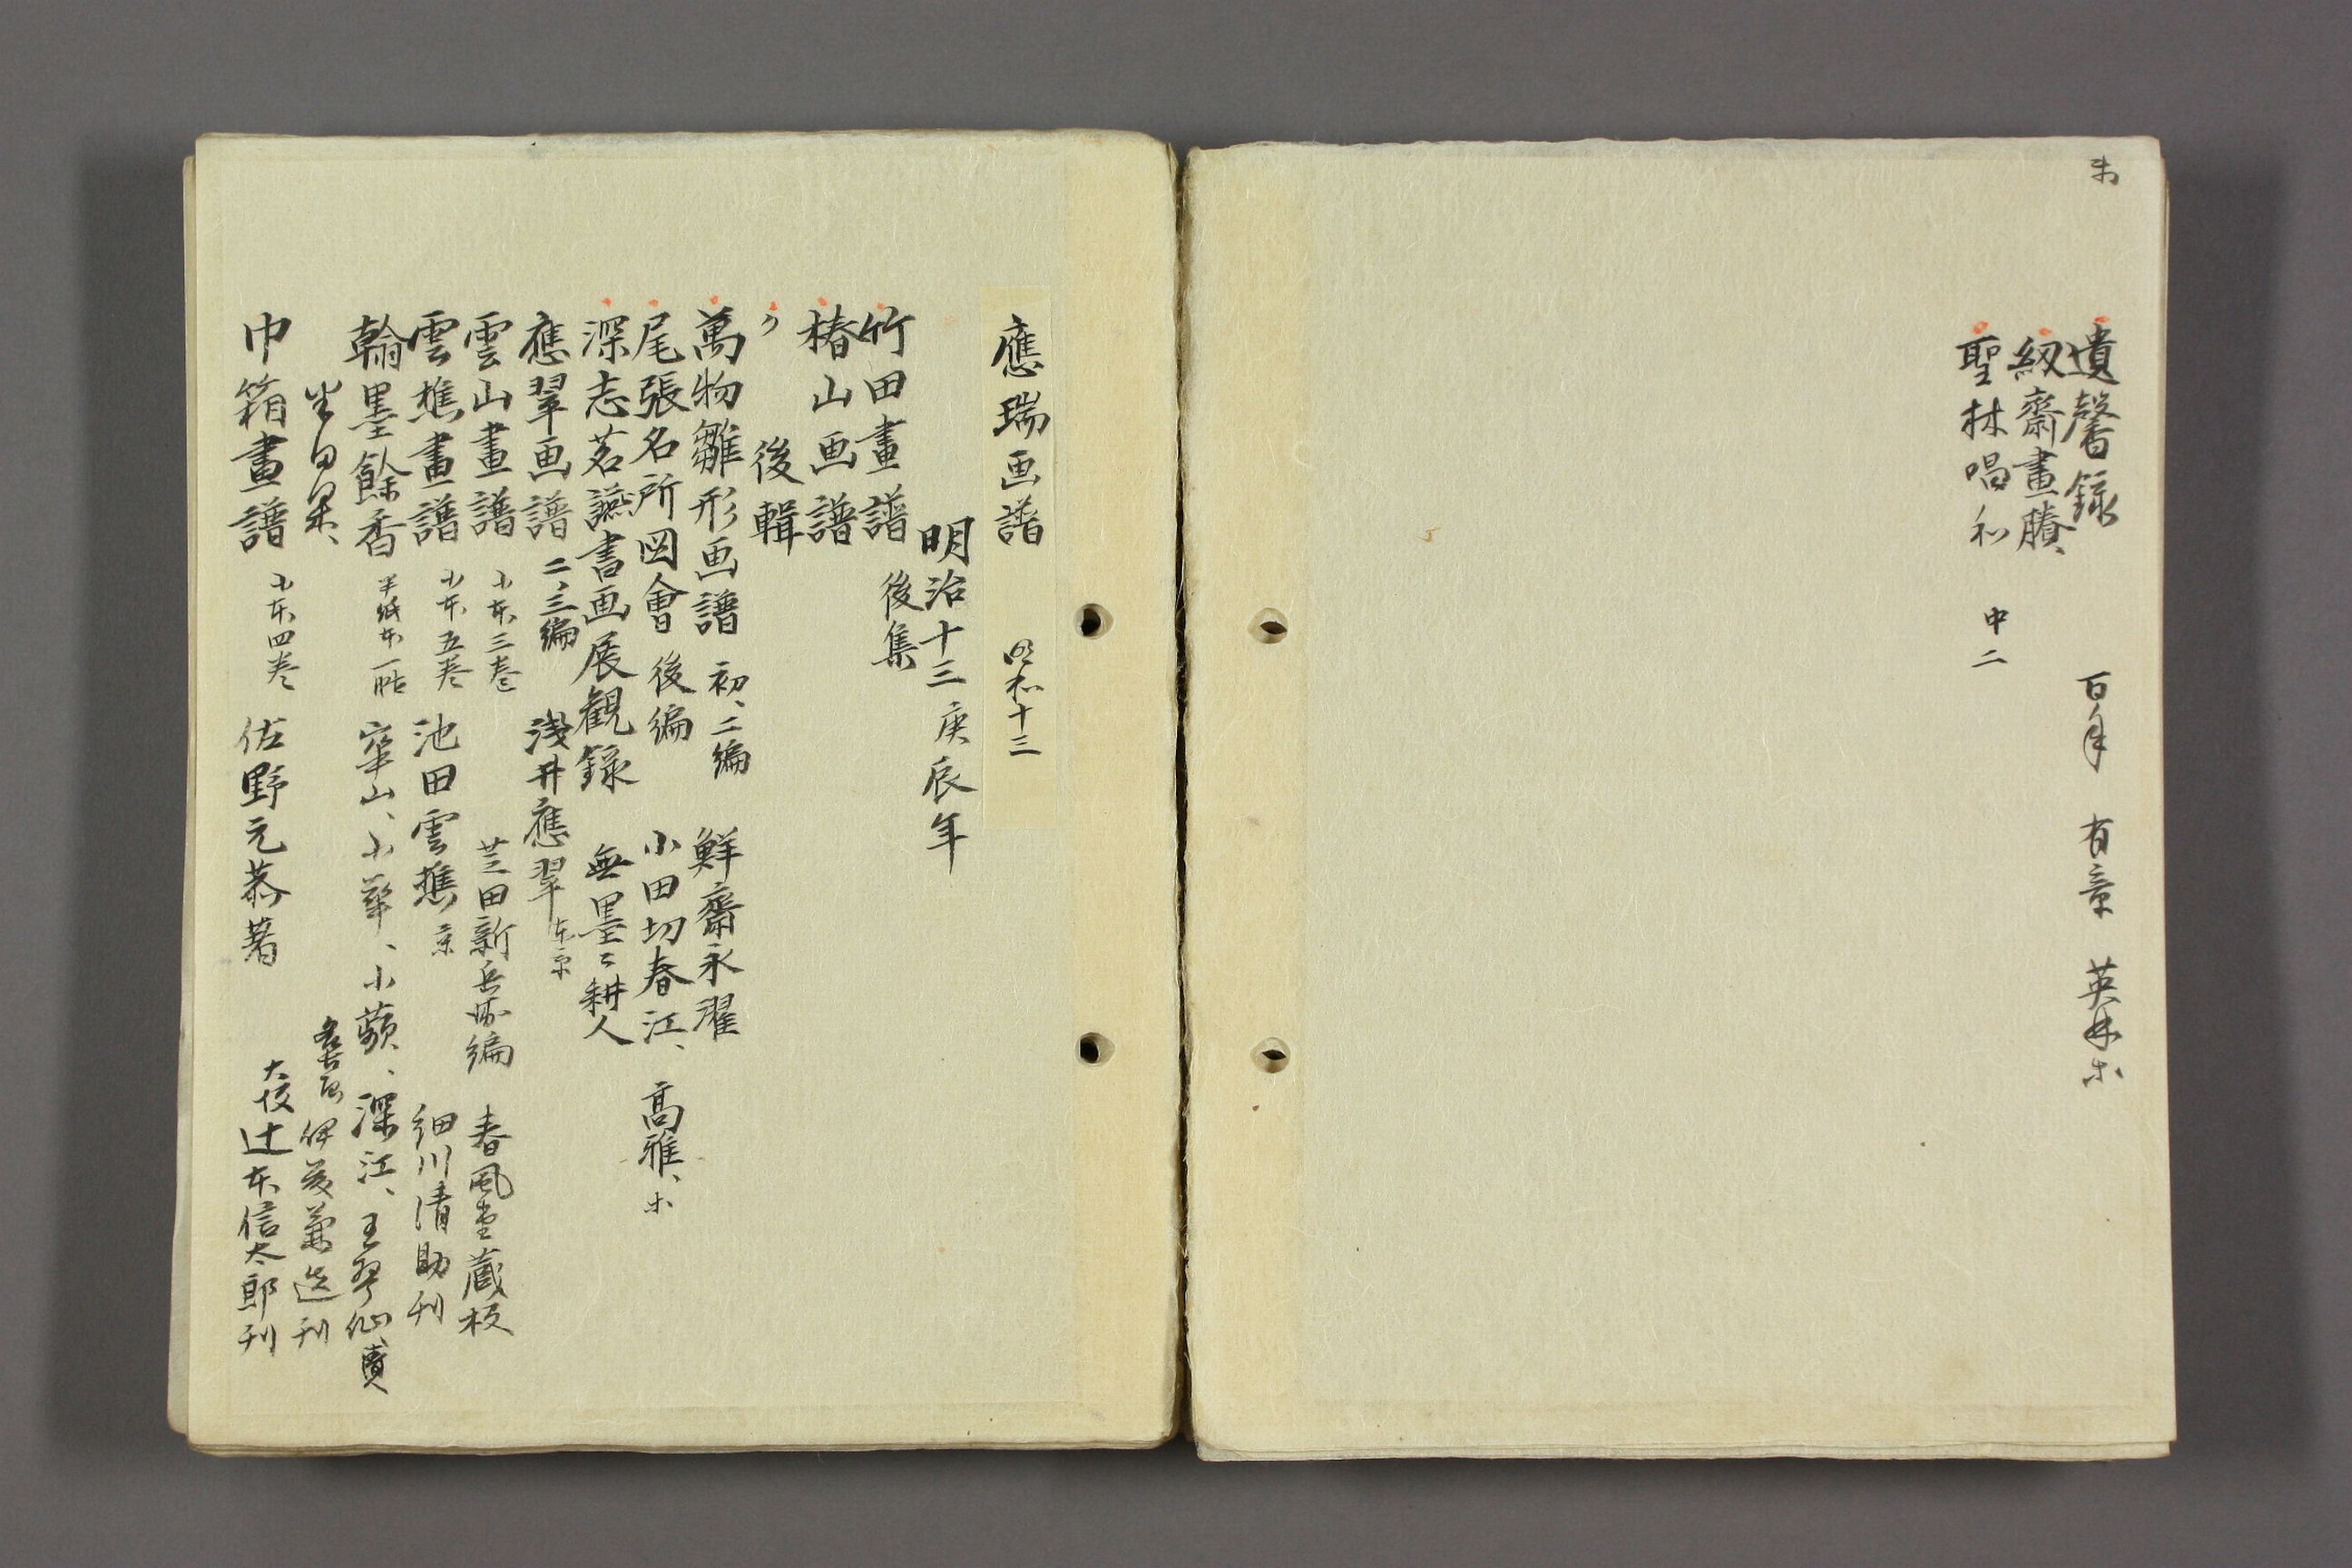 遺馨録 百年 有章 英林ホ
級齋畫賸
聖林唱和 中二
應瑞画譜 明和十三
明治十三庚辰年
竹田畫譜 後集
椿山画譜
〃 後輯
萬物雛形画譜 初、二編 鮮齋永濯
尾張名所図會 後編 小田切春江、高雅、ホ
深志茗讌書画展観録 無墨々耕人
應翠画譜 二、三編 浅井應翠 東京
雲山畫譜 小本三巻 芝田新兵衛編 春風堂蔵板
雲樵畫譜 小本五巻 池田雲樵 京 細川清助刊
翰墨餘香 半紙本一帖 崋山、小華、小蘋、深江、王琴仙賣
名古屋 伊藤兼造刊
巾箱畫譜 小本四巻 佐野元恭著 大坂 辻本信太郎刊